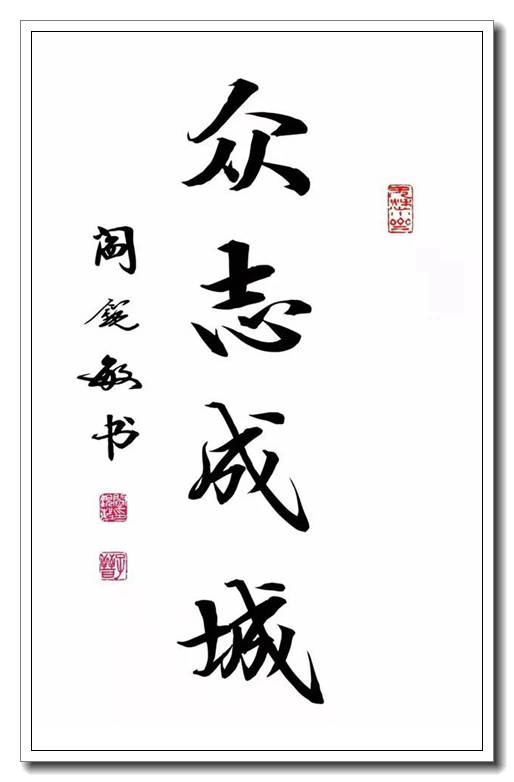 众志成城
阎锐敏书